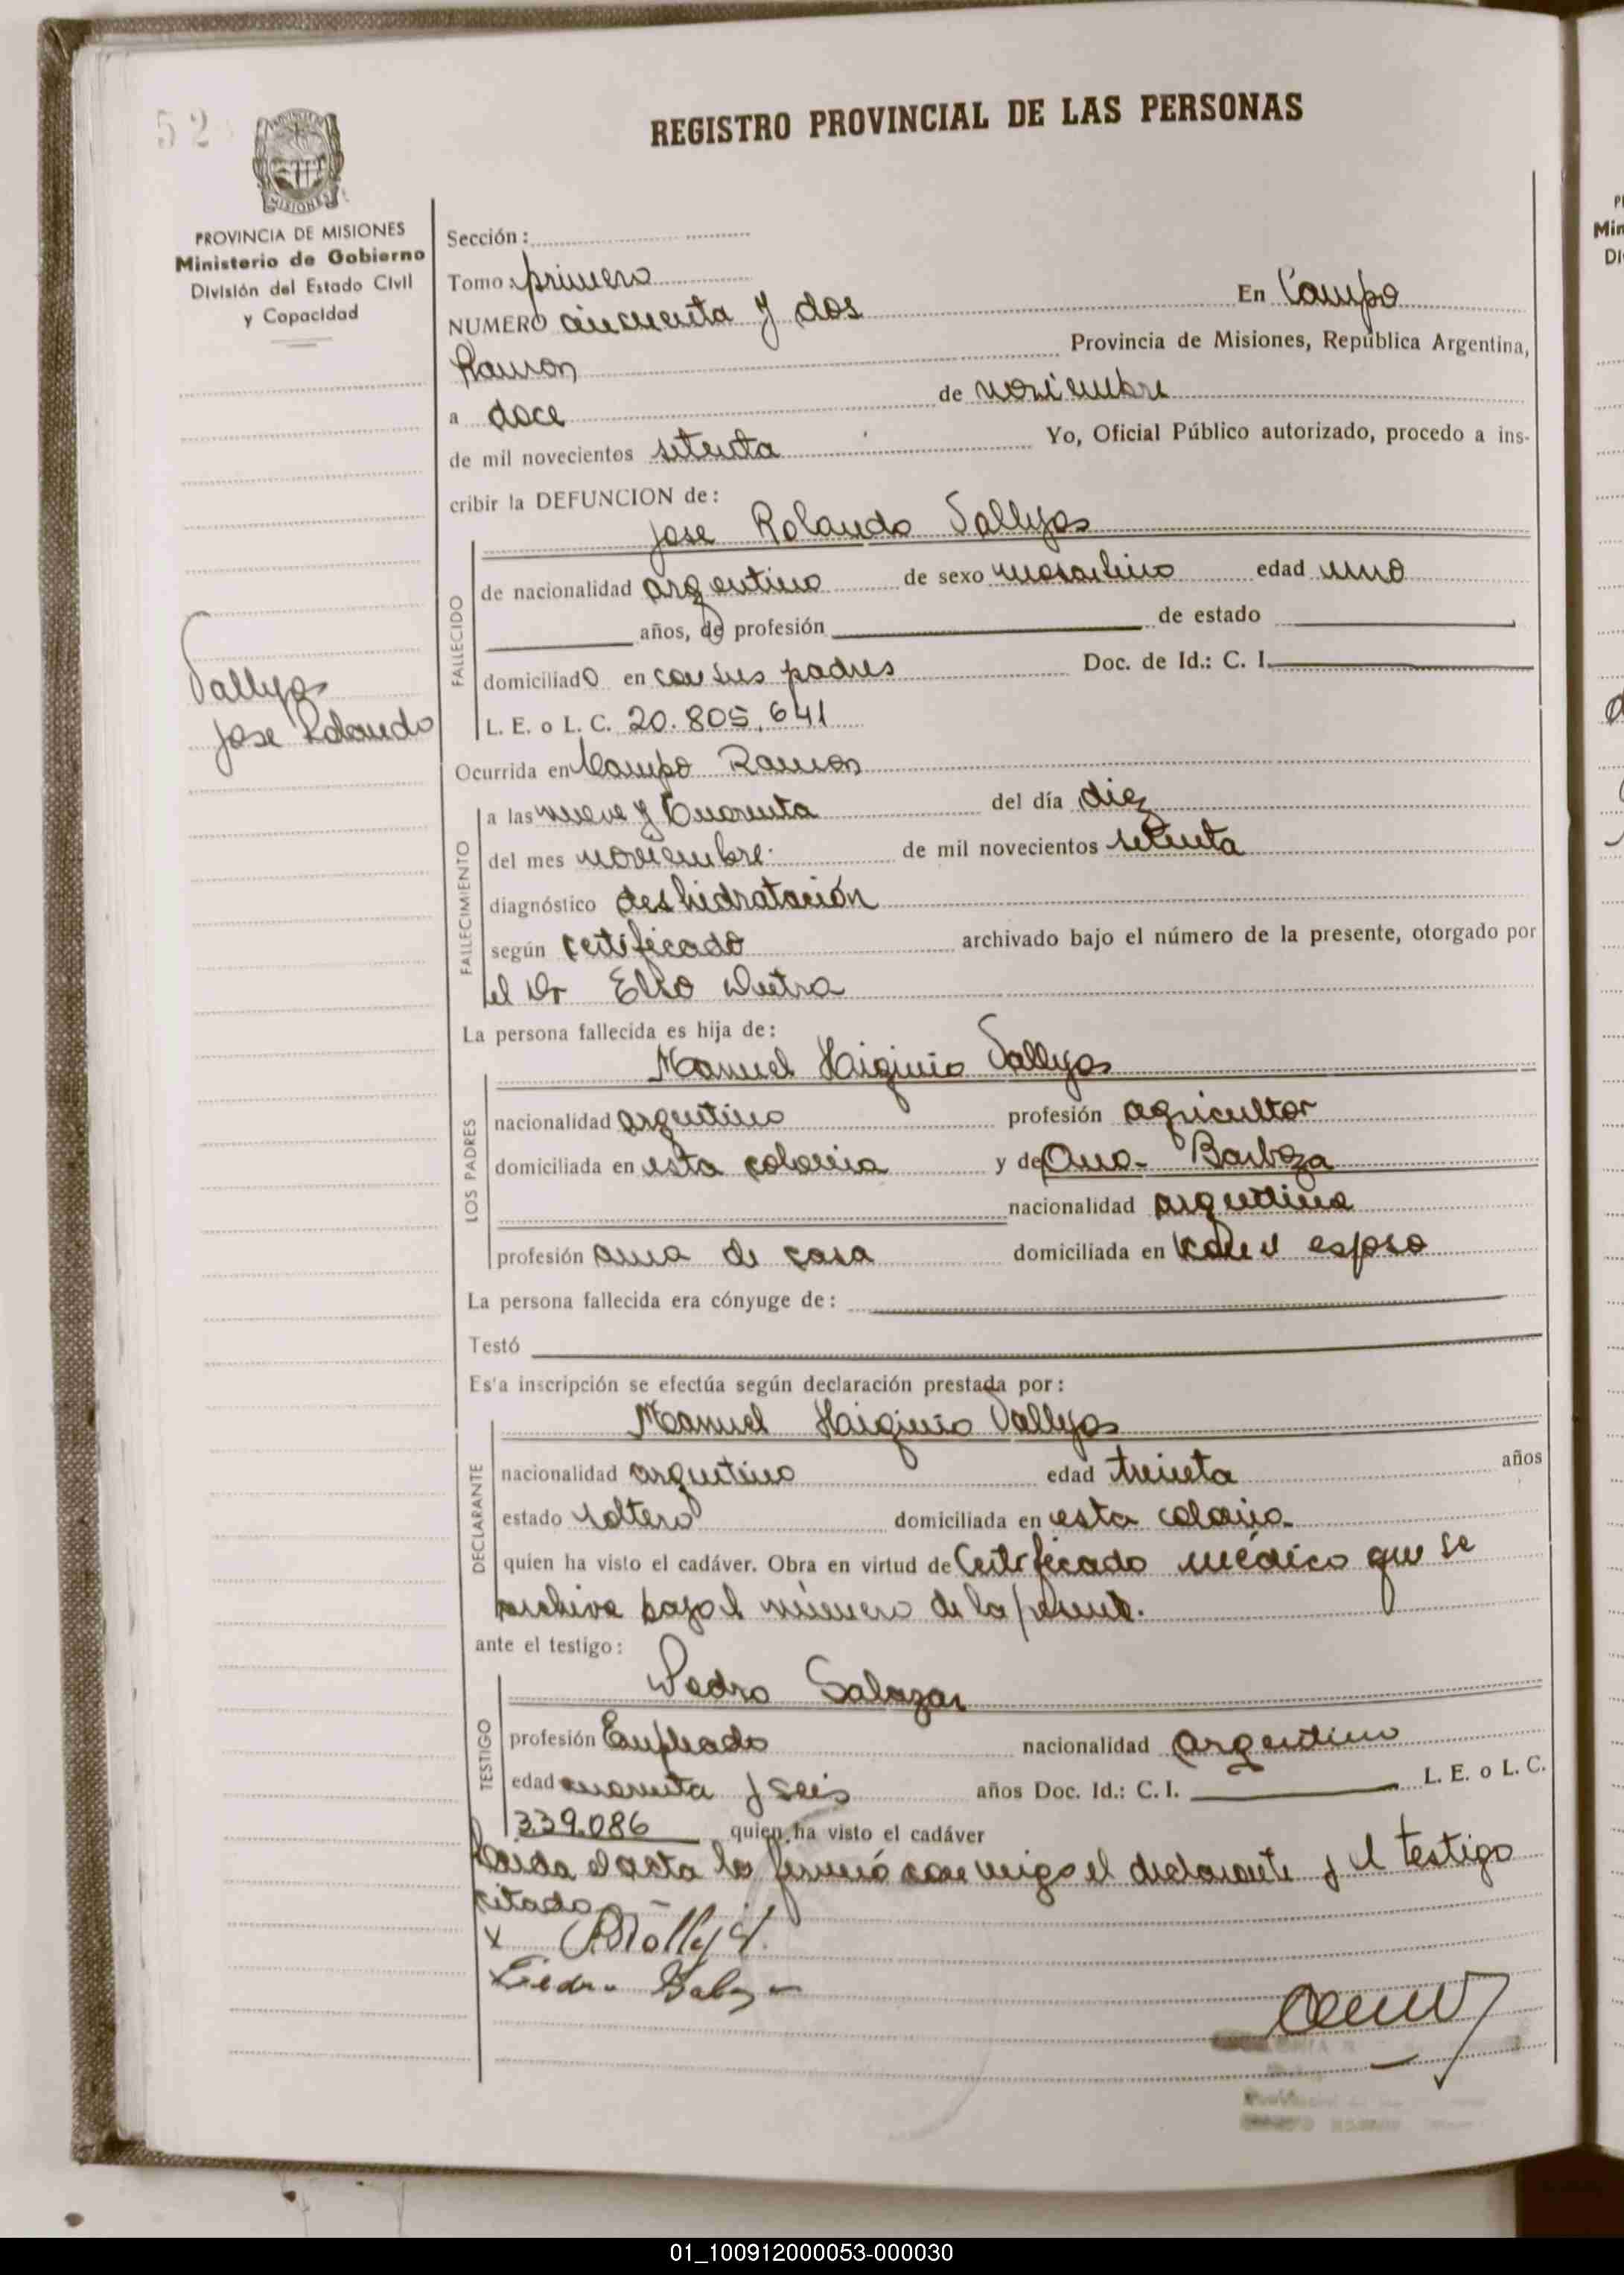 52
REGISTRO PROVINCIAL DE LAS PERSONAS
MISIONES
PROVINCIA DE MISIONES
Ministerio de Gobierno
División del Estado Civil
y Capacidad
Vallejos
Jose Rolando
Sección:
Tomo: primero
NUMERO cincuenta y dos En Campo
Ramon Provincia de Misiones, República Argentina,
a doce de noviembre
de mil novecientos setenta Yo, Oficial Público autorizado, procedo a ins-
cribir la DEFUNCION de:
Jose Rolando Vallejos
FALLECIDO
de nacionalidad argentino de sexo masculino edad uno
años, de profesión de estado
domiciliado en con sus padres Doc. de Id.: C. I.
L. E. o L. C. 20.805.641
Ocurrida en Campo Ramon
FALLECIMIENTO
a las nueve y Cuarenta del día diez
del mes noviembre de mil novecientos setenta
diagnóstico deshidratación
según certificado archivado bajo el número de la presente, otorgado por
el Dr Elio Dutra
La persona fallecida es hija de:
Manuel Higinio Vallejos
LOS PADRES
nacionalidad argentino profesión agricultor
domiciliada en esta colonia y de Ana Barboza
nacionalidad argentina
profesión ama de casa domiciliada en esposo
La persona fallecida era cónyuge de:
Testó
Es'a inscripción se efectúa según declaración prestada por:
Manuel Higinio Vallejos
DECLARANTE
nacionalidad argentino edad treinta años
estado soltero domiciliada en esta colonia
quien ha visto el cadáver. Obra en virtud de Certificado médico que se
archiva bajo el número de la presente.
ante el testigo:
Pedro Salazar
TESTIGO
profesión Empleado nacionalidad argentino
edad cuarenta y seis años Doc. Id.: C. I. L. E. o L. C.
339.086 quien ha visto el cadáver
Leida el acta la firmó conmigo el declarante y el testigo
citado
x
01_100912000053-000030